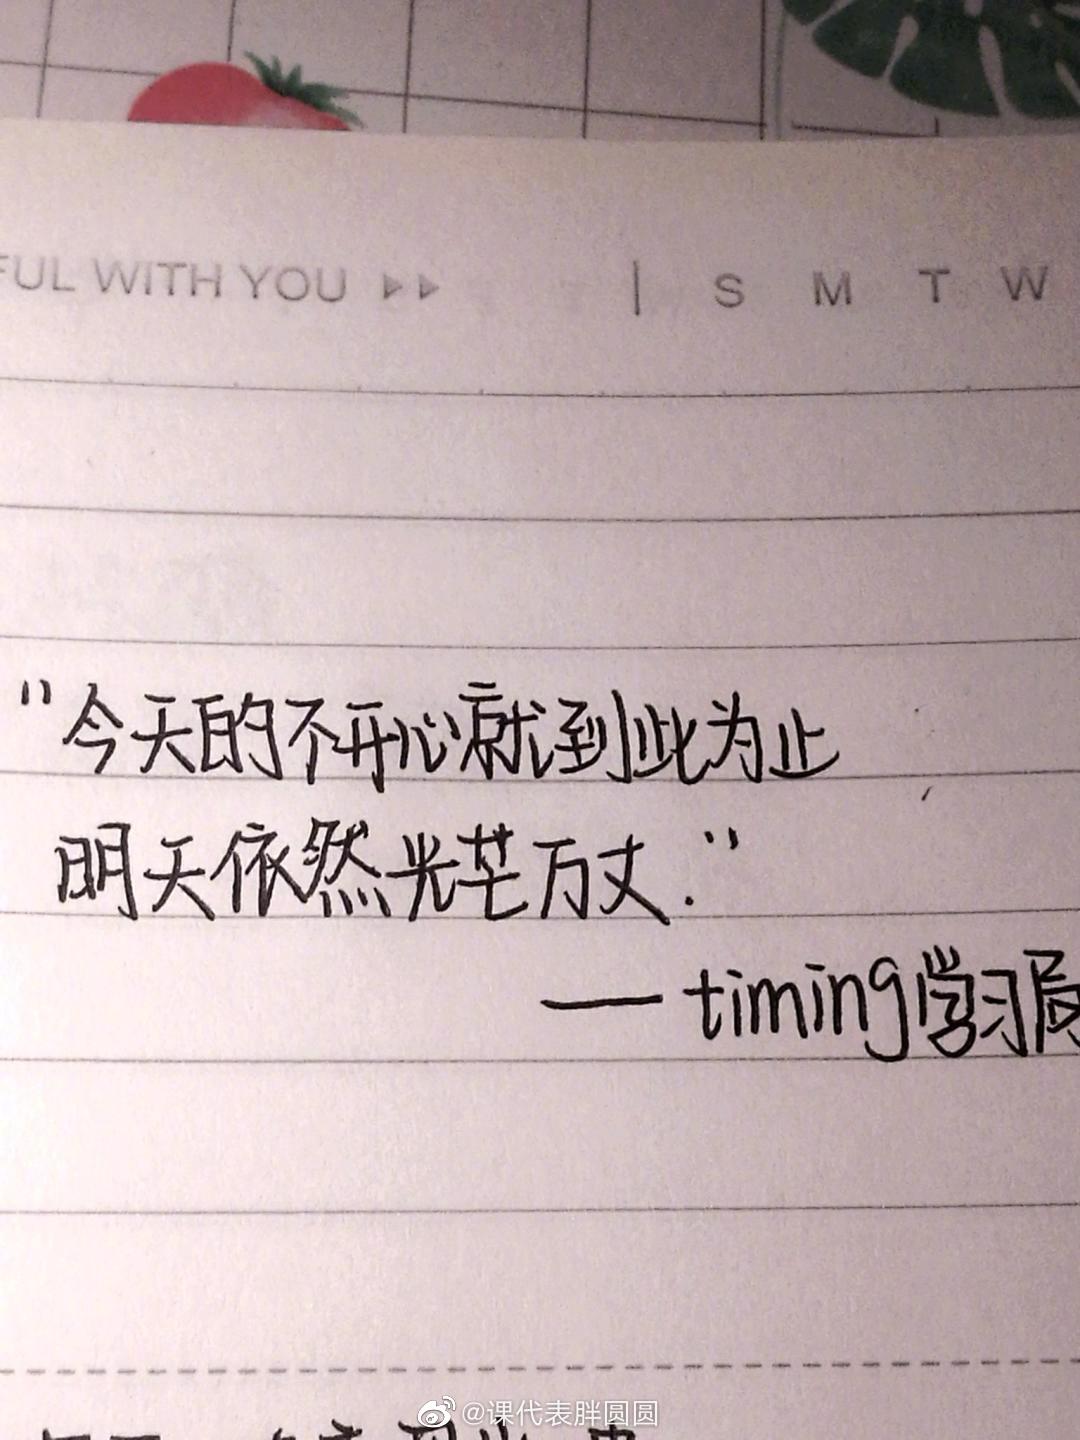 FUL WITH YOU ▶▶ | S M T W
“今天的不开心就到此为止
明天依然光芒万丈.”
— timing学习局
@课代表胖圆圆